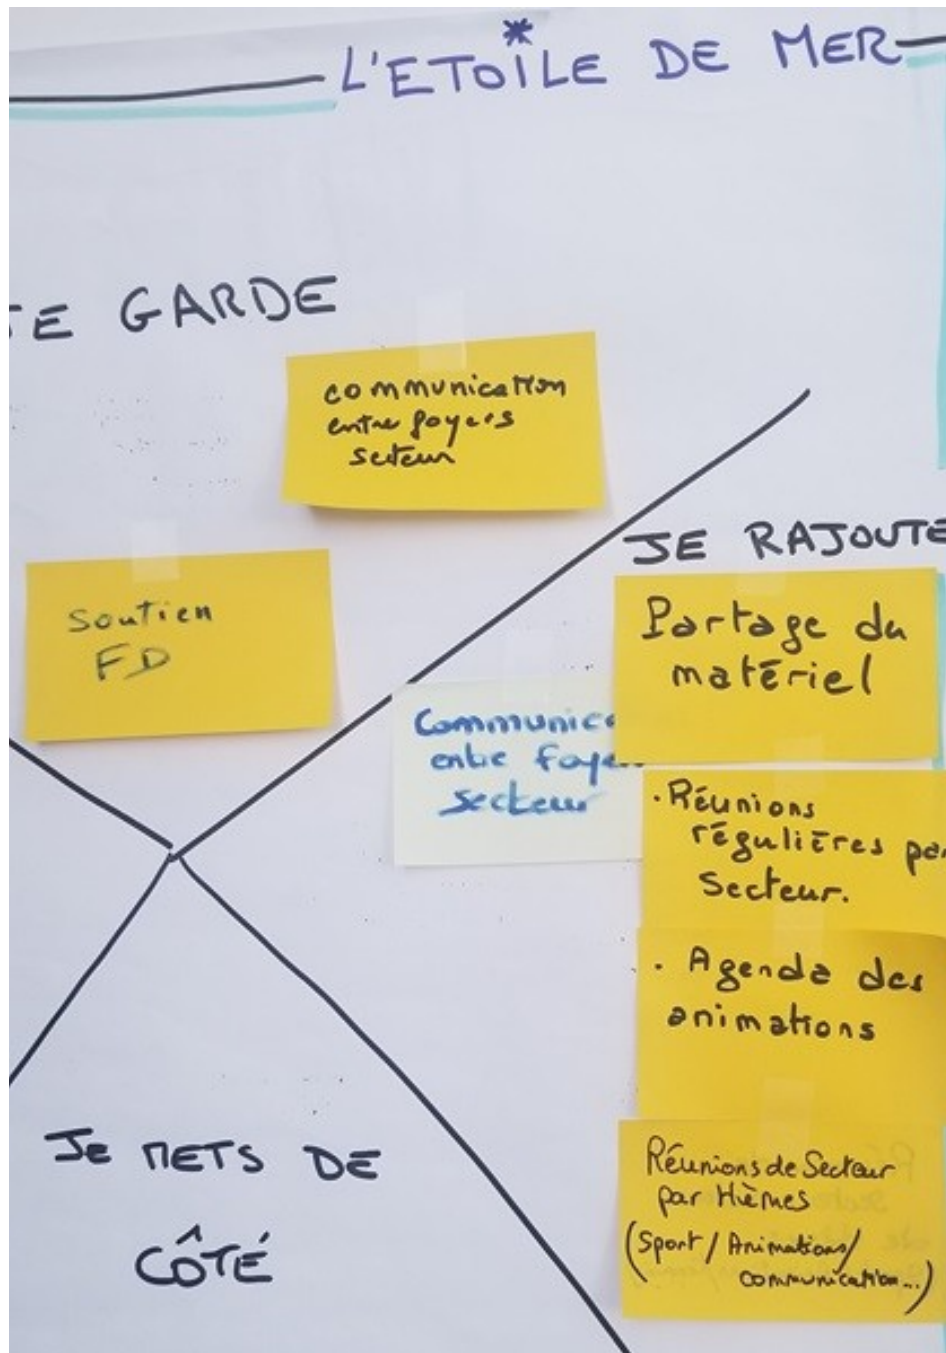 L'ETOILE DE MER
GARDE
communication
entre foyers
secteur
Soutien
FD
JE RAJOUTE
Partage du
matériel
entre
secteur
. Réunions
régulières
Secteur.
. Agenda des
animations
Réunions de Secteur
par thèmes
(Sport / Animations /
communication...)
JE METS DE
CÔTÉ